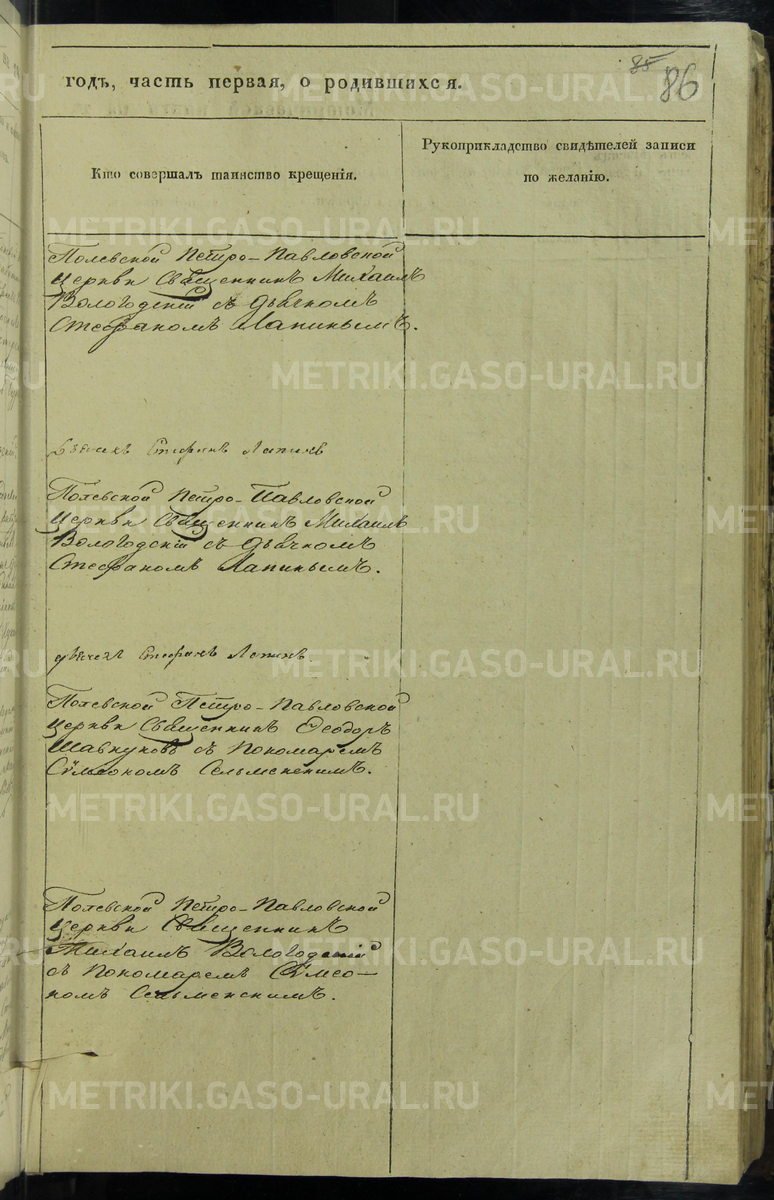 85
86
годъ, часть первая, о родившихся.
Кто совершалъ таинство крещенія.
Рукоприкладство свидѣтелей записи
по желанію.
Полевской Петро-Павловской
церкви Священникъ Михаилъ
Вологодскій съ дьячкомъ
Стефаномъ Лапинымъ.
дьячекъ Стефанъ Лапинъ
Полевской Петро-Павловской
церкви Священникъ Михаилъ
Вологодскій съ дьячкомъ
Стефаномъ Лапинымъ.
дьячекъ Стефанъ Лапинъ.
Полевской Петро-Павловской
церкви Священникъ Ѳеодоръ
съ Пономаремъ
Сѵмеономъ Сельменскимъ.
Полевской Петро-Павловской
церкви Священникъ
Михаилъ Вологодскій
съ Пономаремъ Сѵмео-
номъ Сельменскимъ.
METRIKI.GASO-URAL.RU